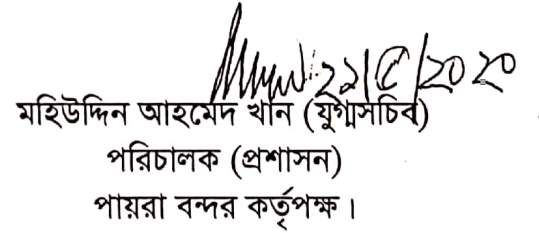 ২১/৫/২০২০
মহিউদ্দিন আহমেদ খান (যুগ্মসচিব)
পরিচালক (প্রশাসন)
পায়রা বন্দর কর্তৃপক্ষ।